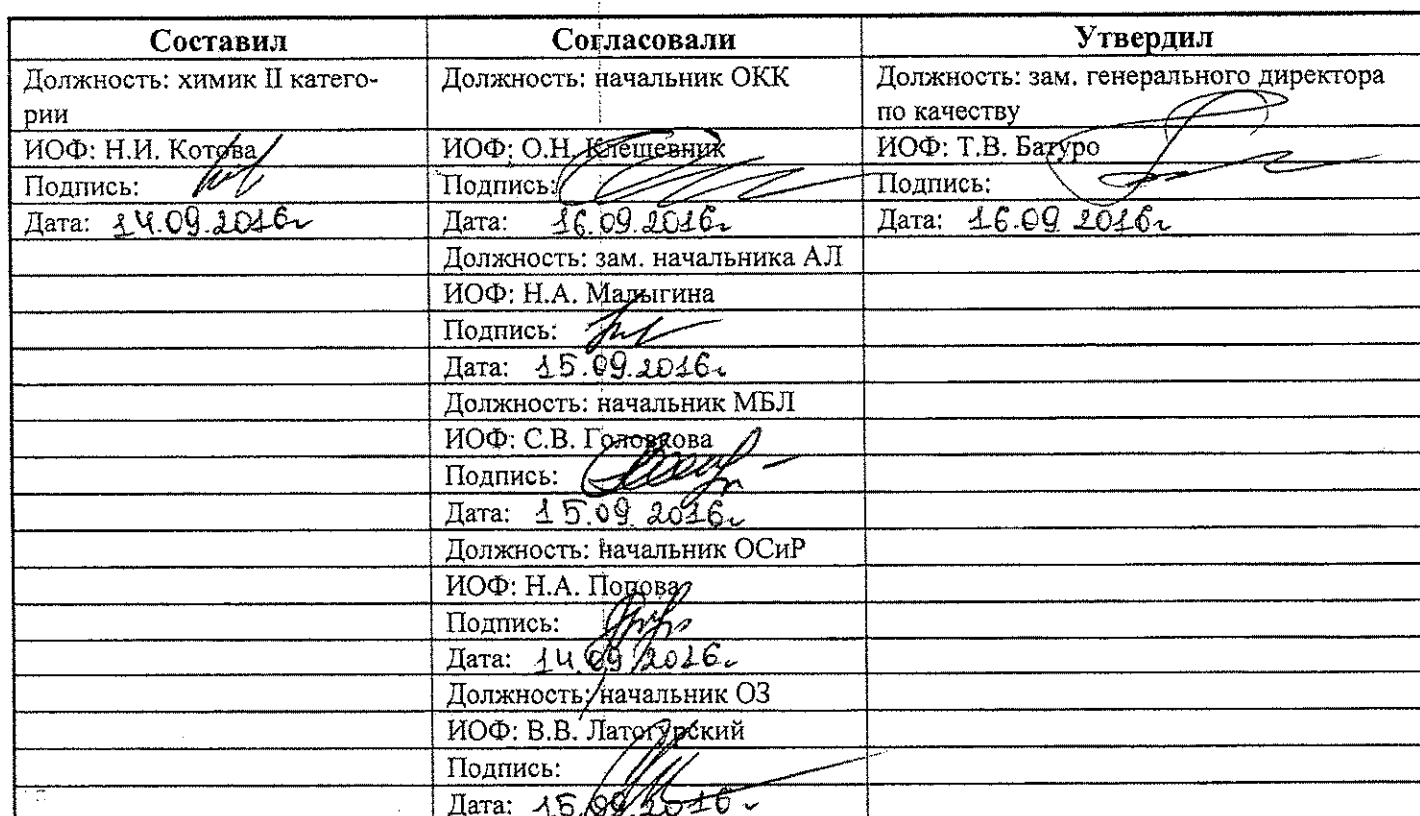 Составил Согласовали Утвердил
Должность: химик II катего- Должность: начальник ОКК Должность: зам. генерального директора
рии по качеству
ИОФ: Н.И. Котова ИОФ: О.Н. Клещевник ИОФ: Т.В. Батуро
Подпись: Подпись: Подпись:
Дата: 14.09.2016г Дата: 16.09.2016г Дата: 16.09.2016г
Должность: зам. начальника АЛ
ИОФ: Н.А. Малыгина
Подпись:
Дата: 15.09.2016г
Должность: начальник МБЛ
ИОФ: С.В. Головкова
Подпись:
Дата: 15.09.2016г
Должность: начальник ОСиР
ИОФ: Н.А. Попова
Подпись:
Дата: 14.09.2016г
Должность: начальник ОЗ
ИОФ: В.В. Латогурский
Подпись:
Дата: 15.09.2016г